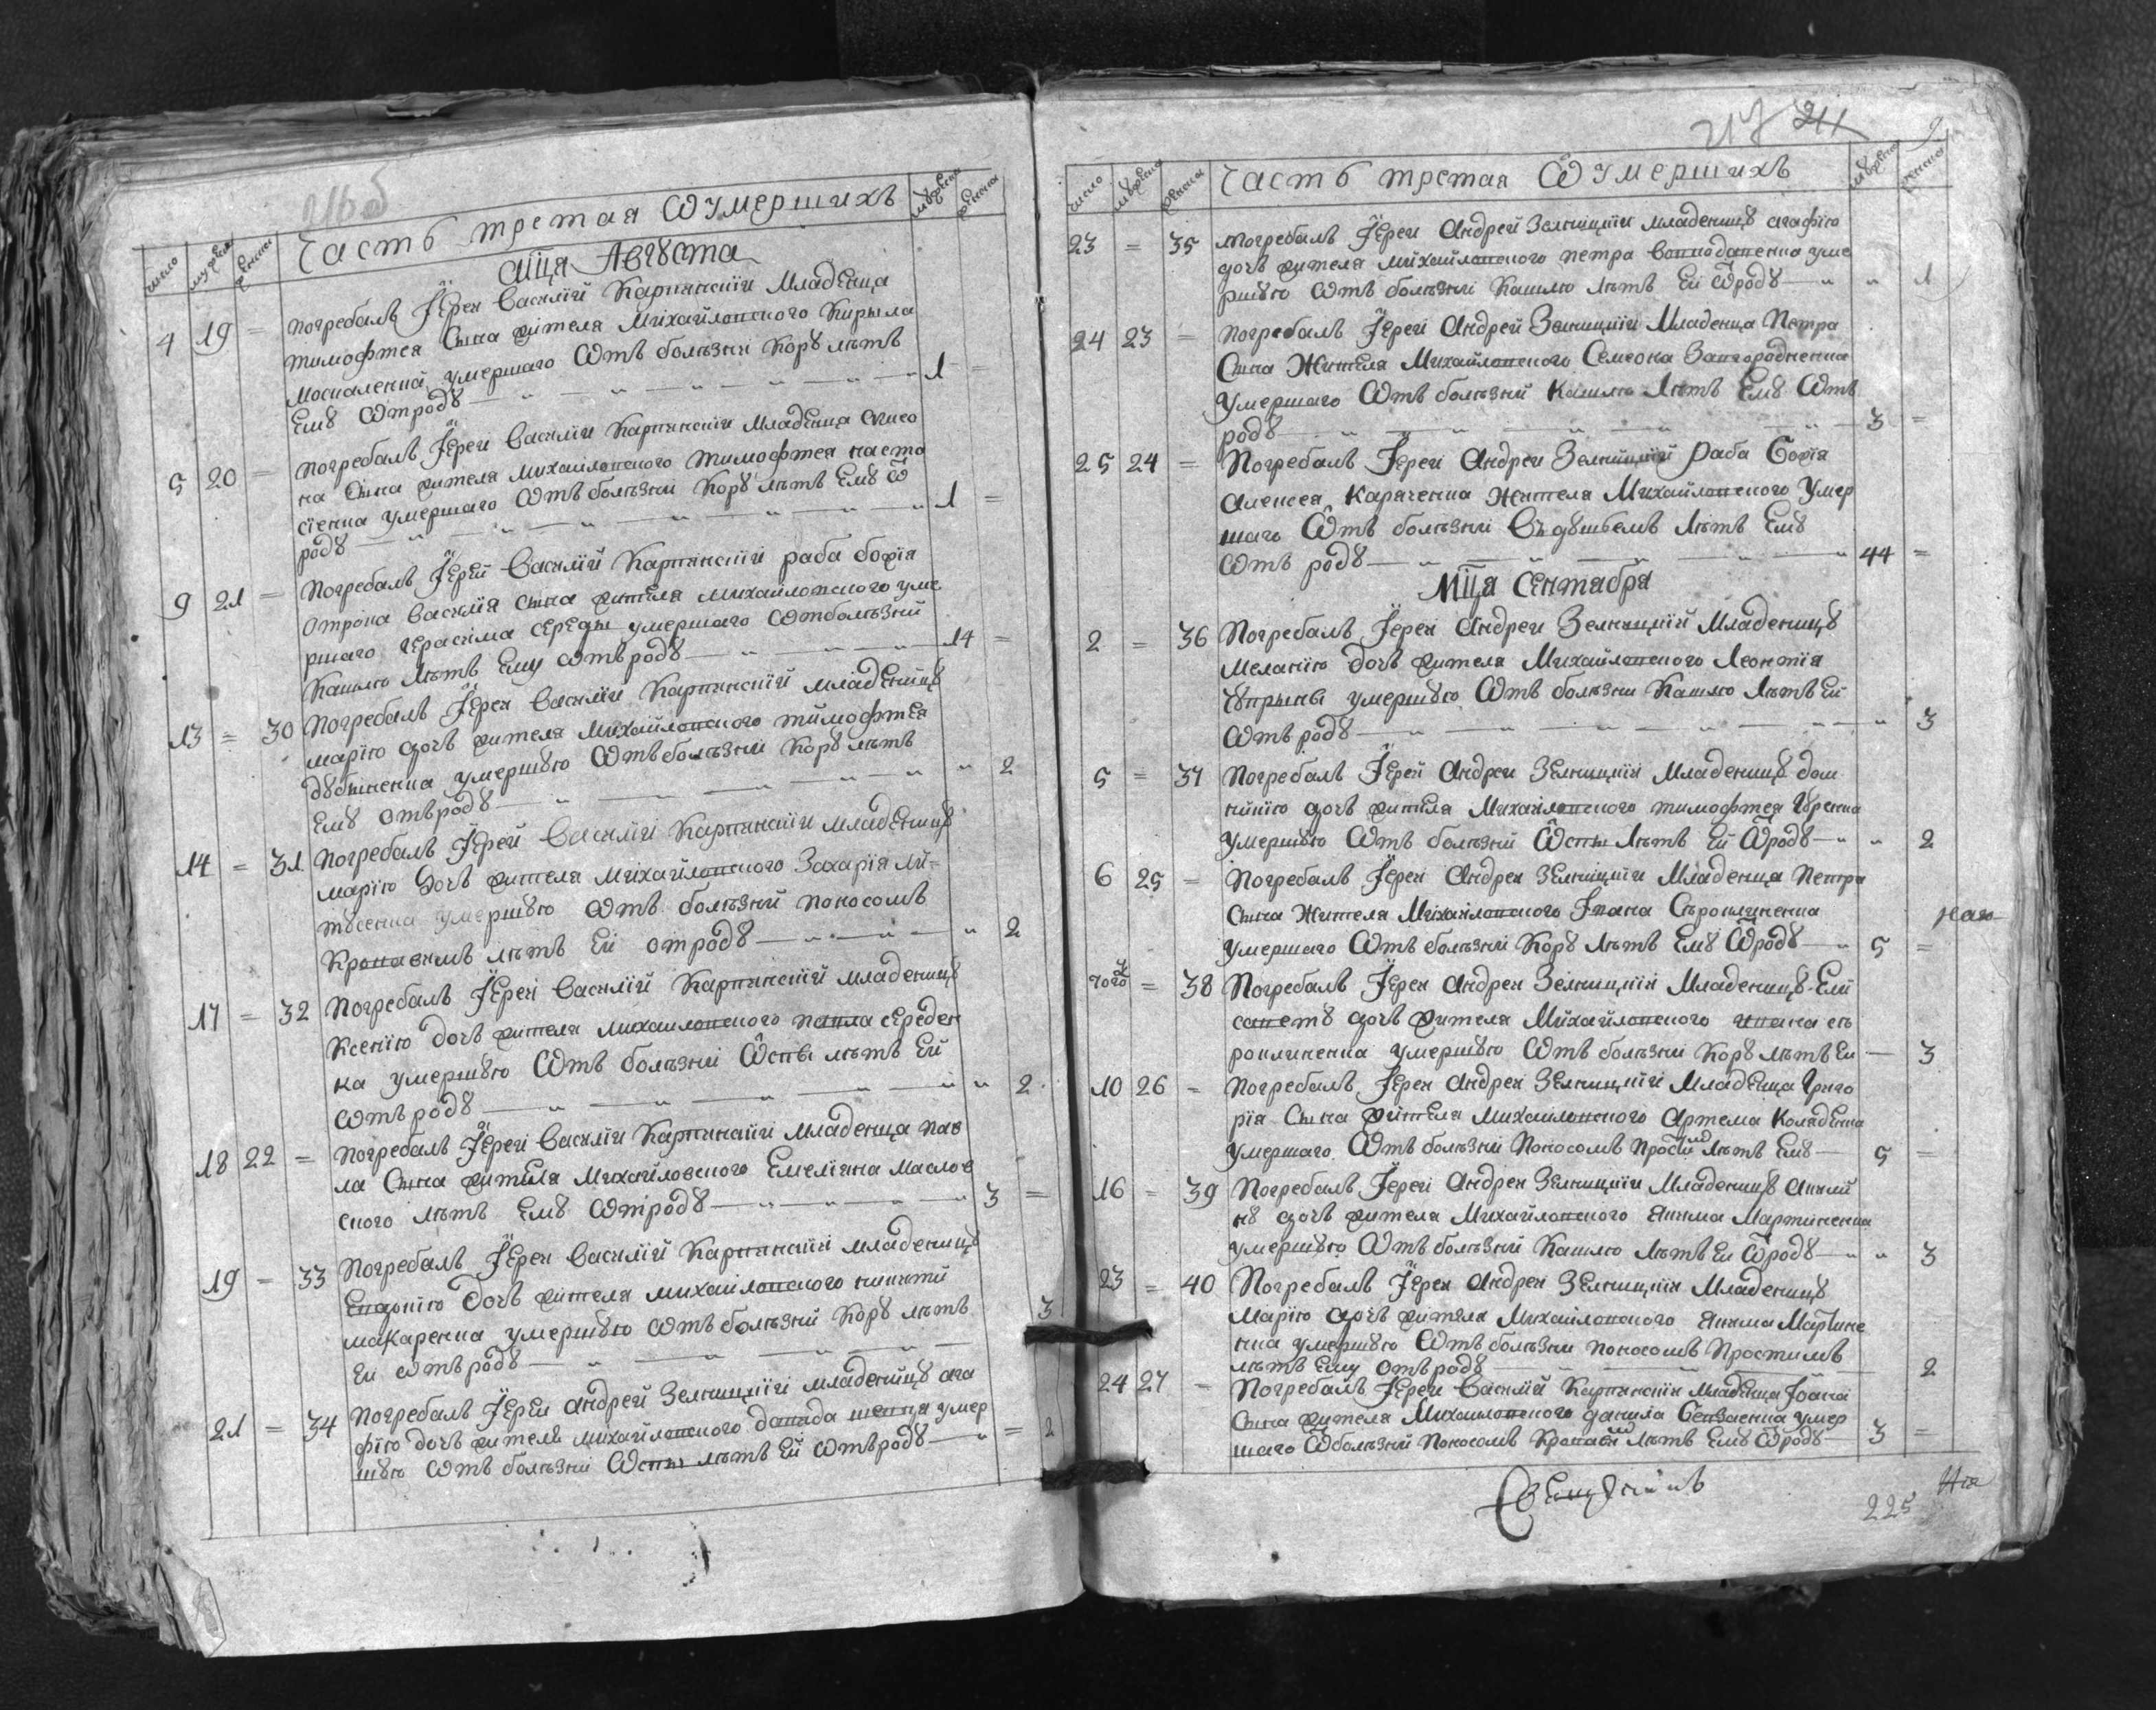 216б
Часть третая Ѿ умершихъ
число мужеска женска
мужеска женска
мц҃а Августа
4 19 = Погребалъ Іерей Василій Карпинскій Младенца
Тимофтея Сына жителя Михайловского Кирыла
Москаленка умершаго Ѿтъ болѣзни Корꙋ лѣтъ
Емꙋ Ѿтродꙋ 1 =
5 20 = Погребалъ Іерей Василій Карпинскій Младенца
на Сына жителя Михайловского Тимофтея Наста
сіенка умершаго Ѿтъ болѣзни Корꙋ лѣтъ Емꙋ Ѿ
родꙋ 1 =
9 21 = Погребалъ Іерей Василій Карпинскій раба божія
Отрока Василія Сына жителя Михайловского уме
ршаго Герасима Середы умершаго Ѿтболѣзни
Кашлю лѣтъ Ему Ѿтъродꙋ 14 =
13 = 30 Погребалъ Іерей Василій Карпинскій младеницꙋ
марію дочъ жителя Михайловского Тимофтея
дꙋбыненка умершꙋю Ѿтъ болѣзни Корꙋ лѣтъ
Емꙋ отъродꙋ 2
14 = 31 Погребалъ Іерей Василій Карпинскій младеницꙋ
марію дочъ жителя Михайловского Захарія Ли-
твꙋсенка умершꙋю Ѿтъ болѣзни поносомъ
Кровавымъ лѣтъ Ей отродꙋ 2
17 = 32 Погребалъ Іерей Василій Карпинскій младеницꙋ
Ксенію дочъ жителя Михайловского павла середен
ка умершꙋю Ѿтъ болѣзни Ѿспы лѣтъ Ей
Ѿтъродꙋ 2
18 22 = Погребалъ Іерей Василій Карпинскій младенца пав
ла Сына жителя Михайловского Емеліяна Маслов
ского лѣтъ Емꙋ Ѿтродꙋ 3 =
19 = 33 Погребалъ Іерей Василій Карпинскій младеницꙋ
Евдокію дочъ жителя михайловского никиты
макаренка умершꙋю Ѿтъ болѣзни Корꙋ лѣтъ
Ей Ѿтъродꙋ 3
21 = 34 Погребалъ Іерей Андрей Зелницкій младеницꙋ ага
фію дочъ жителя михайловского давида шевця умер
шꙋю Ѿтъ болѣзни Ѿспы лѣтъ Ей Ѿтъродꙋ = 2
217 211
Часть третая Ѿ умершихъ
число мужеска женска
мужеска женска
23 = 35 Погребалъ Іерей Андрей Зелницкій младеницꙋ агафію
дочъ жителя Михайловского петра уме
ршꙋю Ѿтъ болѣзни Кашлю лѣтъ Ей Ѿродꙋ 1
24 23 = Погребалъ Іерей Андрей Зелницкій Младенца Петра
Сына Жителя Михайловского Семеона Завгородненка
Умершаго Ѿтъ болѣзни Кашлю Лѣтъ Емꙋ Ѿтъ
родꙋ 3 =
25 24 = Погребалъ Іерей Андрей Зелницкій Раба Божія
Алексея Караченка Жителя Михайловского Умер
шаго Ѿтъ болѣзни Лѣтъ Емꙋ
Ѿтъ родꙋ 44 =
Мц҃а Сентабра
2 = 36 Погребалъ Іерей Андрей Зелницкій Младеницꙋ
Меланію дочъ жителя Михайловского Леонтія
Чꙋпрыны умершꙋю Ѿтъ болѣзни Кашлю Лѣтъ Ей
Ѿтъ родꙋ 3
5 = 37 Погребалъ Іерей Андрей Зелницкій Младеницꙋ дом
никію дочъ жителя Михайловского тимофтея
Умершꙋю Ѿтъ болѣзни Ѿспы Лѣтъ Ей Ѿродꙋ 2
6 25 = Погребалъ Іерей Андрей Зелницкій Младенца Петра
Сына Жителя Михайловского Івана Сыроклиненка
Умершаго Ѿтъ болѣзни Корꙋ Лѣтъ Емꙋ Ѿродꙋ 5 =
того = 38 Погребалъ Іерей Андрей Зелницкій Младеницꙋ Ели
саветꙋ дочъ жителя Михайловского ивана сы
роклиненка умершꙋю Ѿтъ болѣзни Корꙋ лѣтъ Ей 3
10 26 = Погребалъ Іерей Андрей Зелницкій Младенца Григо
рія Сына жителя Михайловского Артема Коляденка
Умершаго Ѿтъ болѣзни Поносомъ Простимъ лѣтъ Емꙋ 5 =
16 = 39 Погребалъ Іерей Андрей Зелницкій Младеницꙋ Акили
нꙋ дочъ жителя Михайловского Якима Мартиненка
умершꙋю Ѿтъ болѣзни Кашлю Лѣтъ Ей Ѿродꙋ 3
23 = 40 Погребалъ Іерей Андрей Зелницкій Младеницꙋ
Марію дочъ жителя Михайловского Якима Мартине
нка умершꙋю Ѿтъ болѣзни поносомъ Простимъ
лѣтъ Ему отъродꙋ 2
24 27 = Погребалъ Іерей Василій Карпинскій Младенца Іоана
Сына жителя Михайловского данила умер
шаго Ѿболѣзни Поносомъ Кровавим лѣтъ Емꙋ Ѿродꙋ 3 =
225